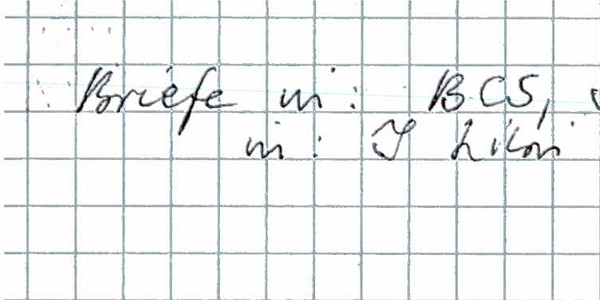 Briefe in: BCS,
in: I